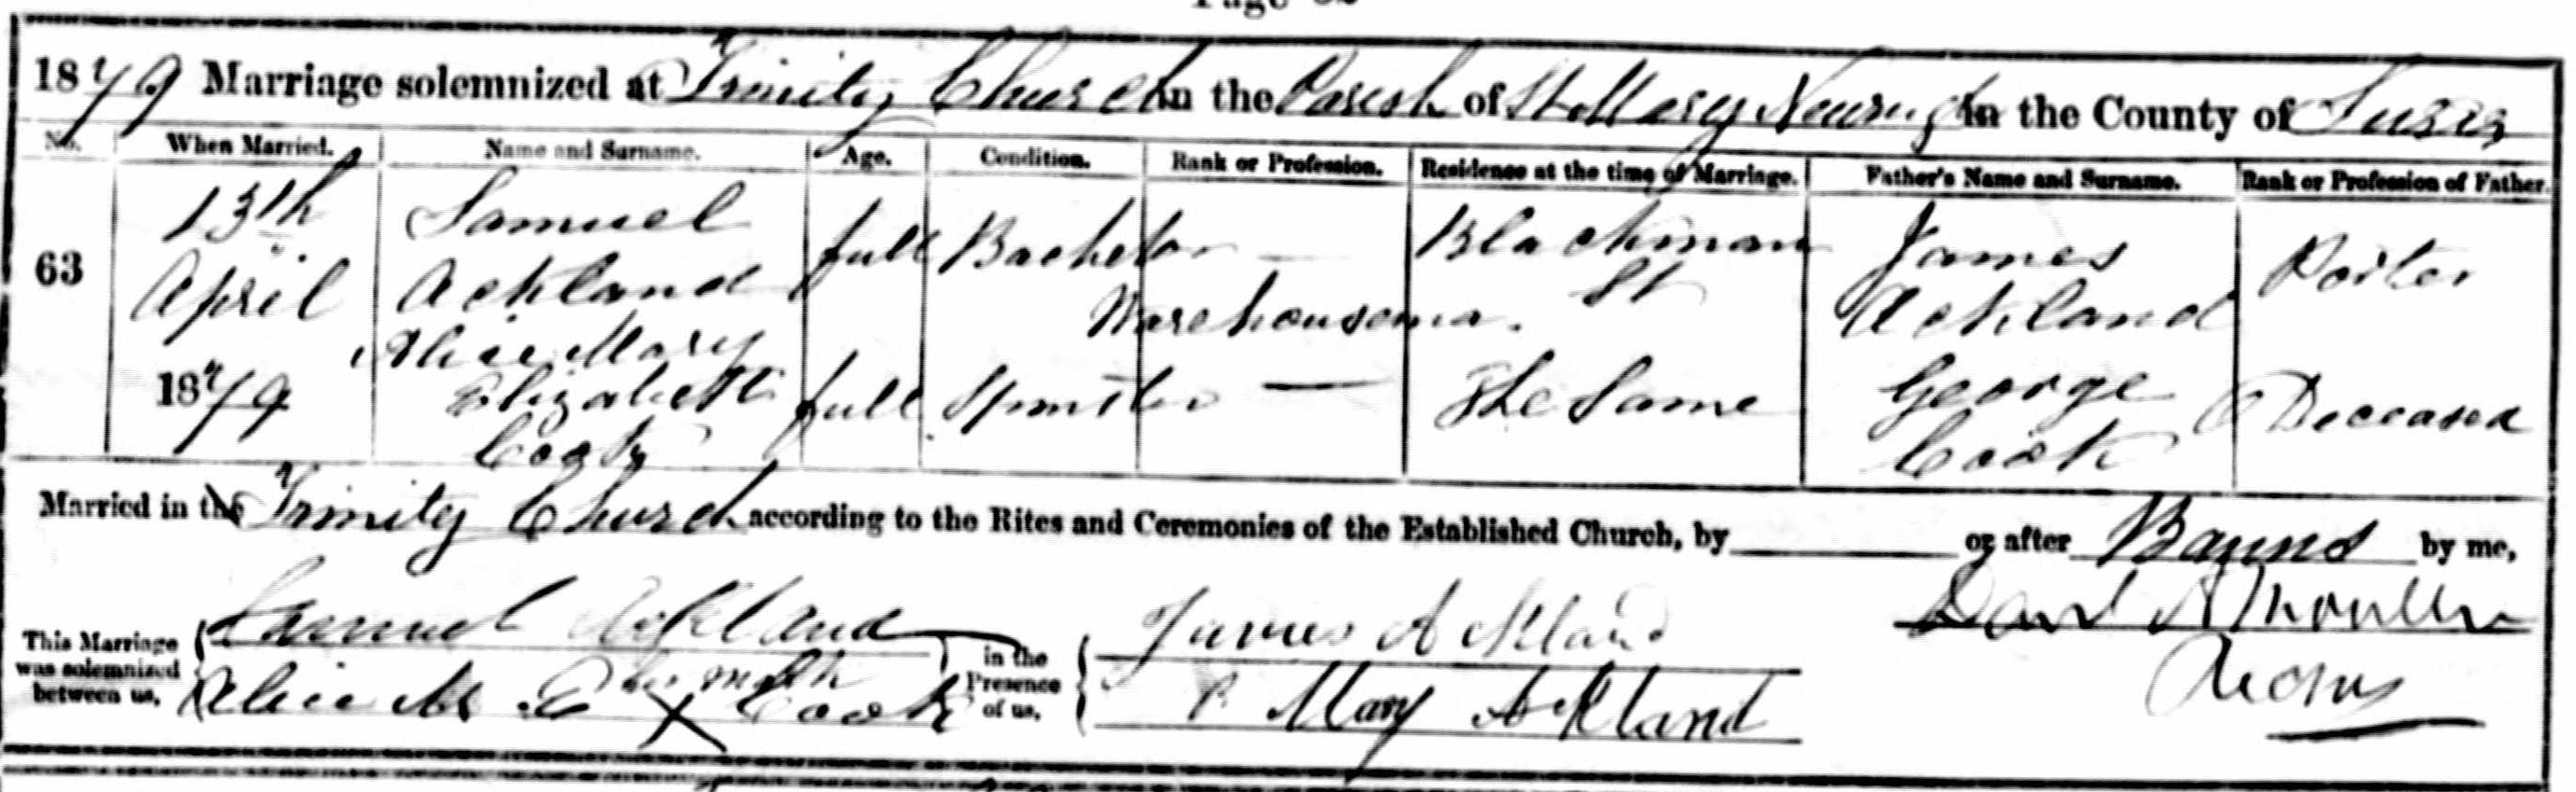 Page
1879 Marriage solemnized at Trinity Church in the Parish of St Mary Newington in the County of Surrey
No. When Married. Name and Surname. Age. Condition. Rank or Profession. Residence at the time of Marriage. Father's Name and Surname. Rank or Profession of Father.
63 13th April 1879 Samuel Ackland full Bachelor — Warehousema. Blackman St James Ackland Porter
Alice Mary Elizabeth Cook full Spinster — The Same George Cook Deceased
Married in the Trinity Church according to the Rites and Ceremonies of the Established Church, by or after Banns by me,
This Marriage was solemnized between us, Samuel Ackland in the Presence of us, James Ackland
Alice M E X Cook Mary Ackland